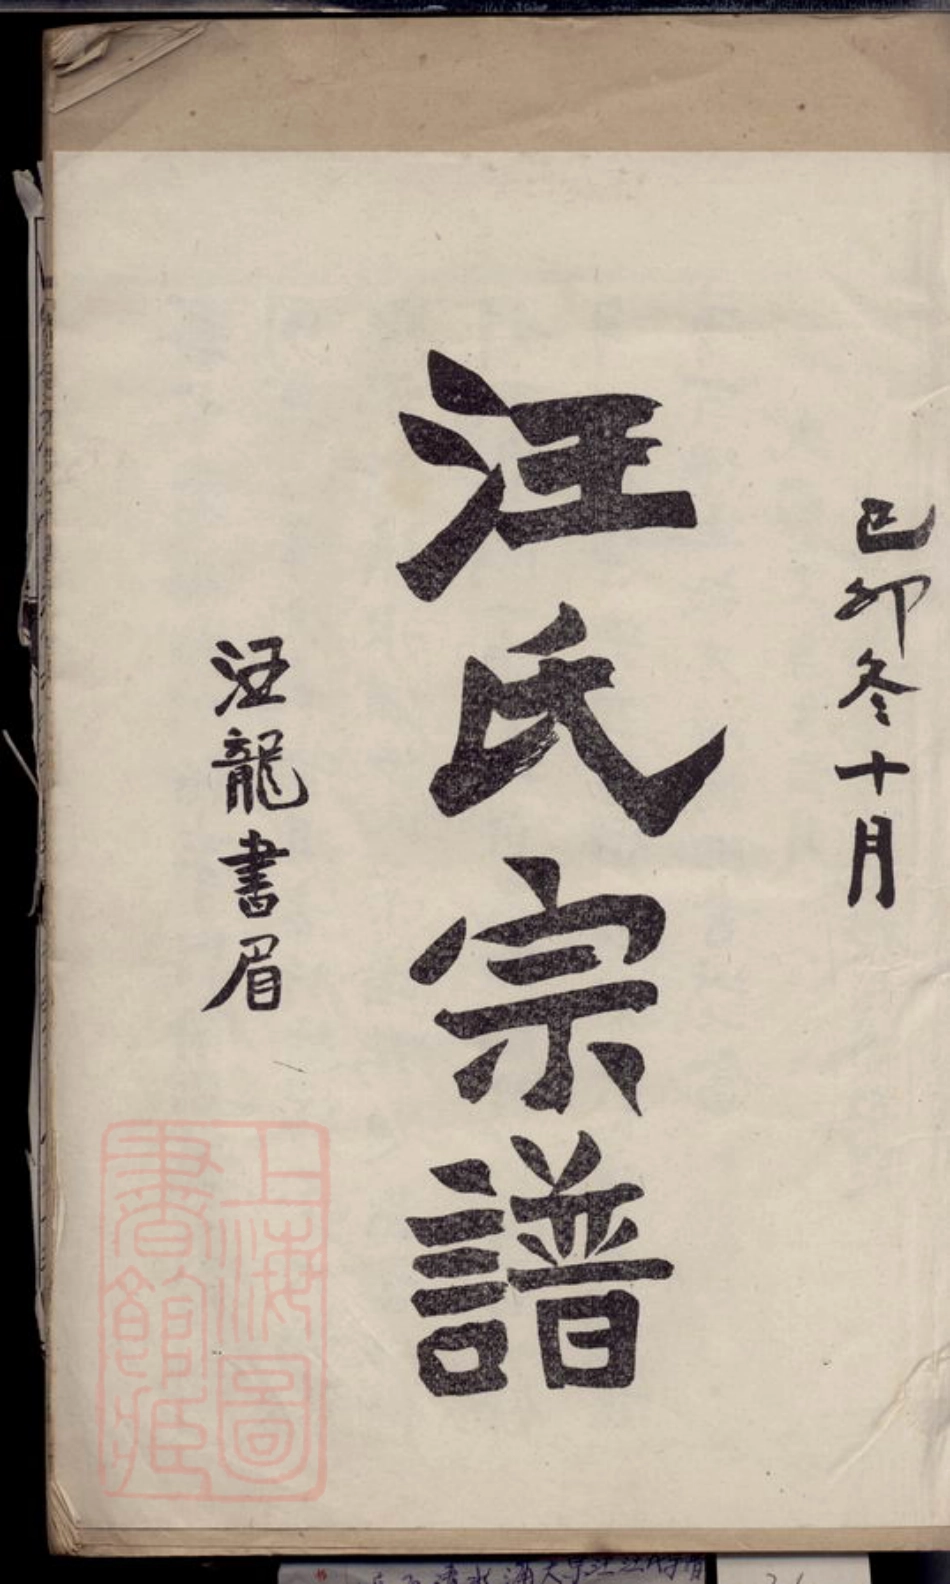 己卯冬十月
汪氏宗譜
汪龍書眉
上海圖
書館藏